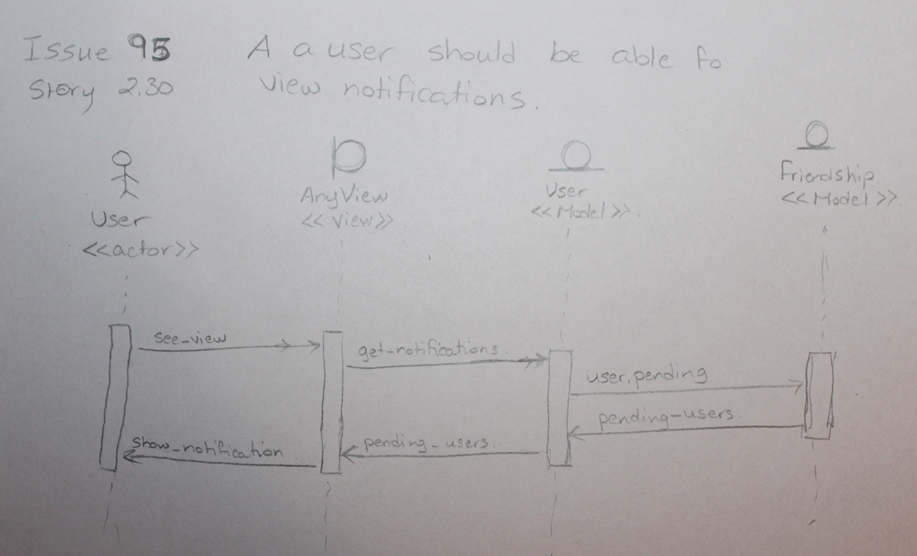 Issue 95 A a user should be able to
Story 2.30 view notifications.
User
<<actor>>
AnyView
<<View>>
User
<<Model>>
Friendship
<<Model>>
see_view
get-notifications
user.pending
pending-users
pending_users
show_notification